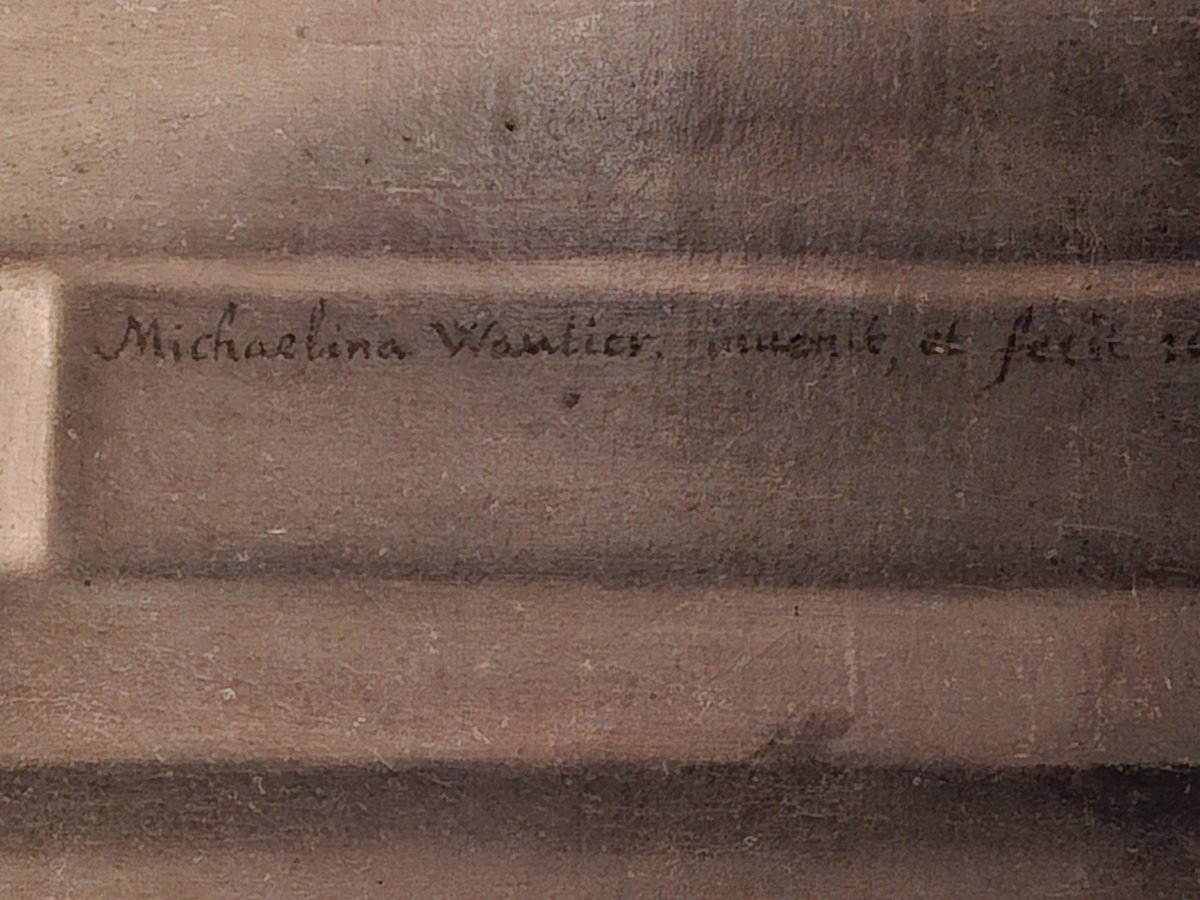 Michaelina Wautier, invenit, et fecit 16